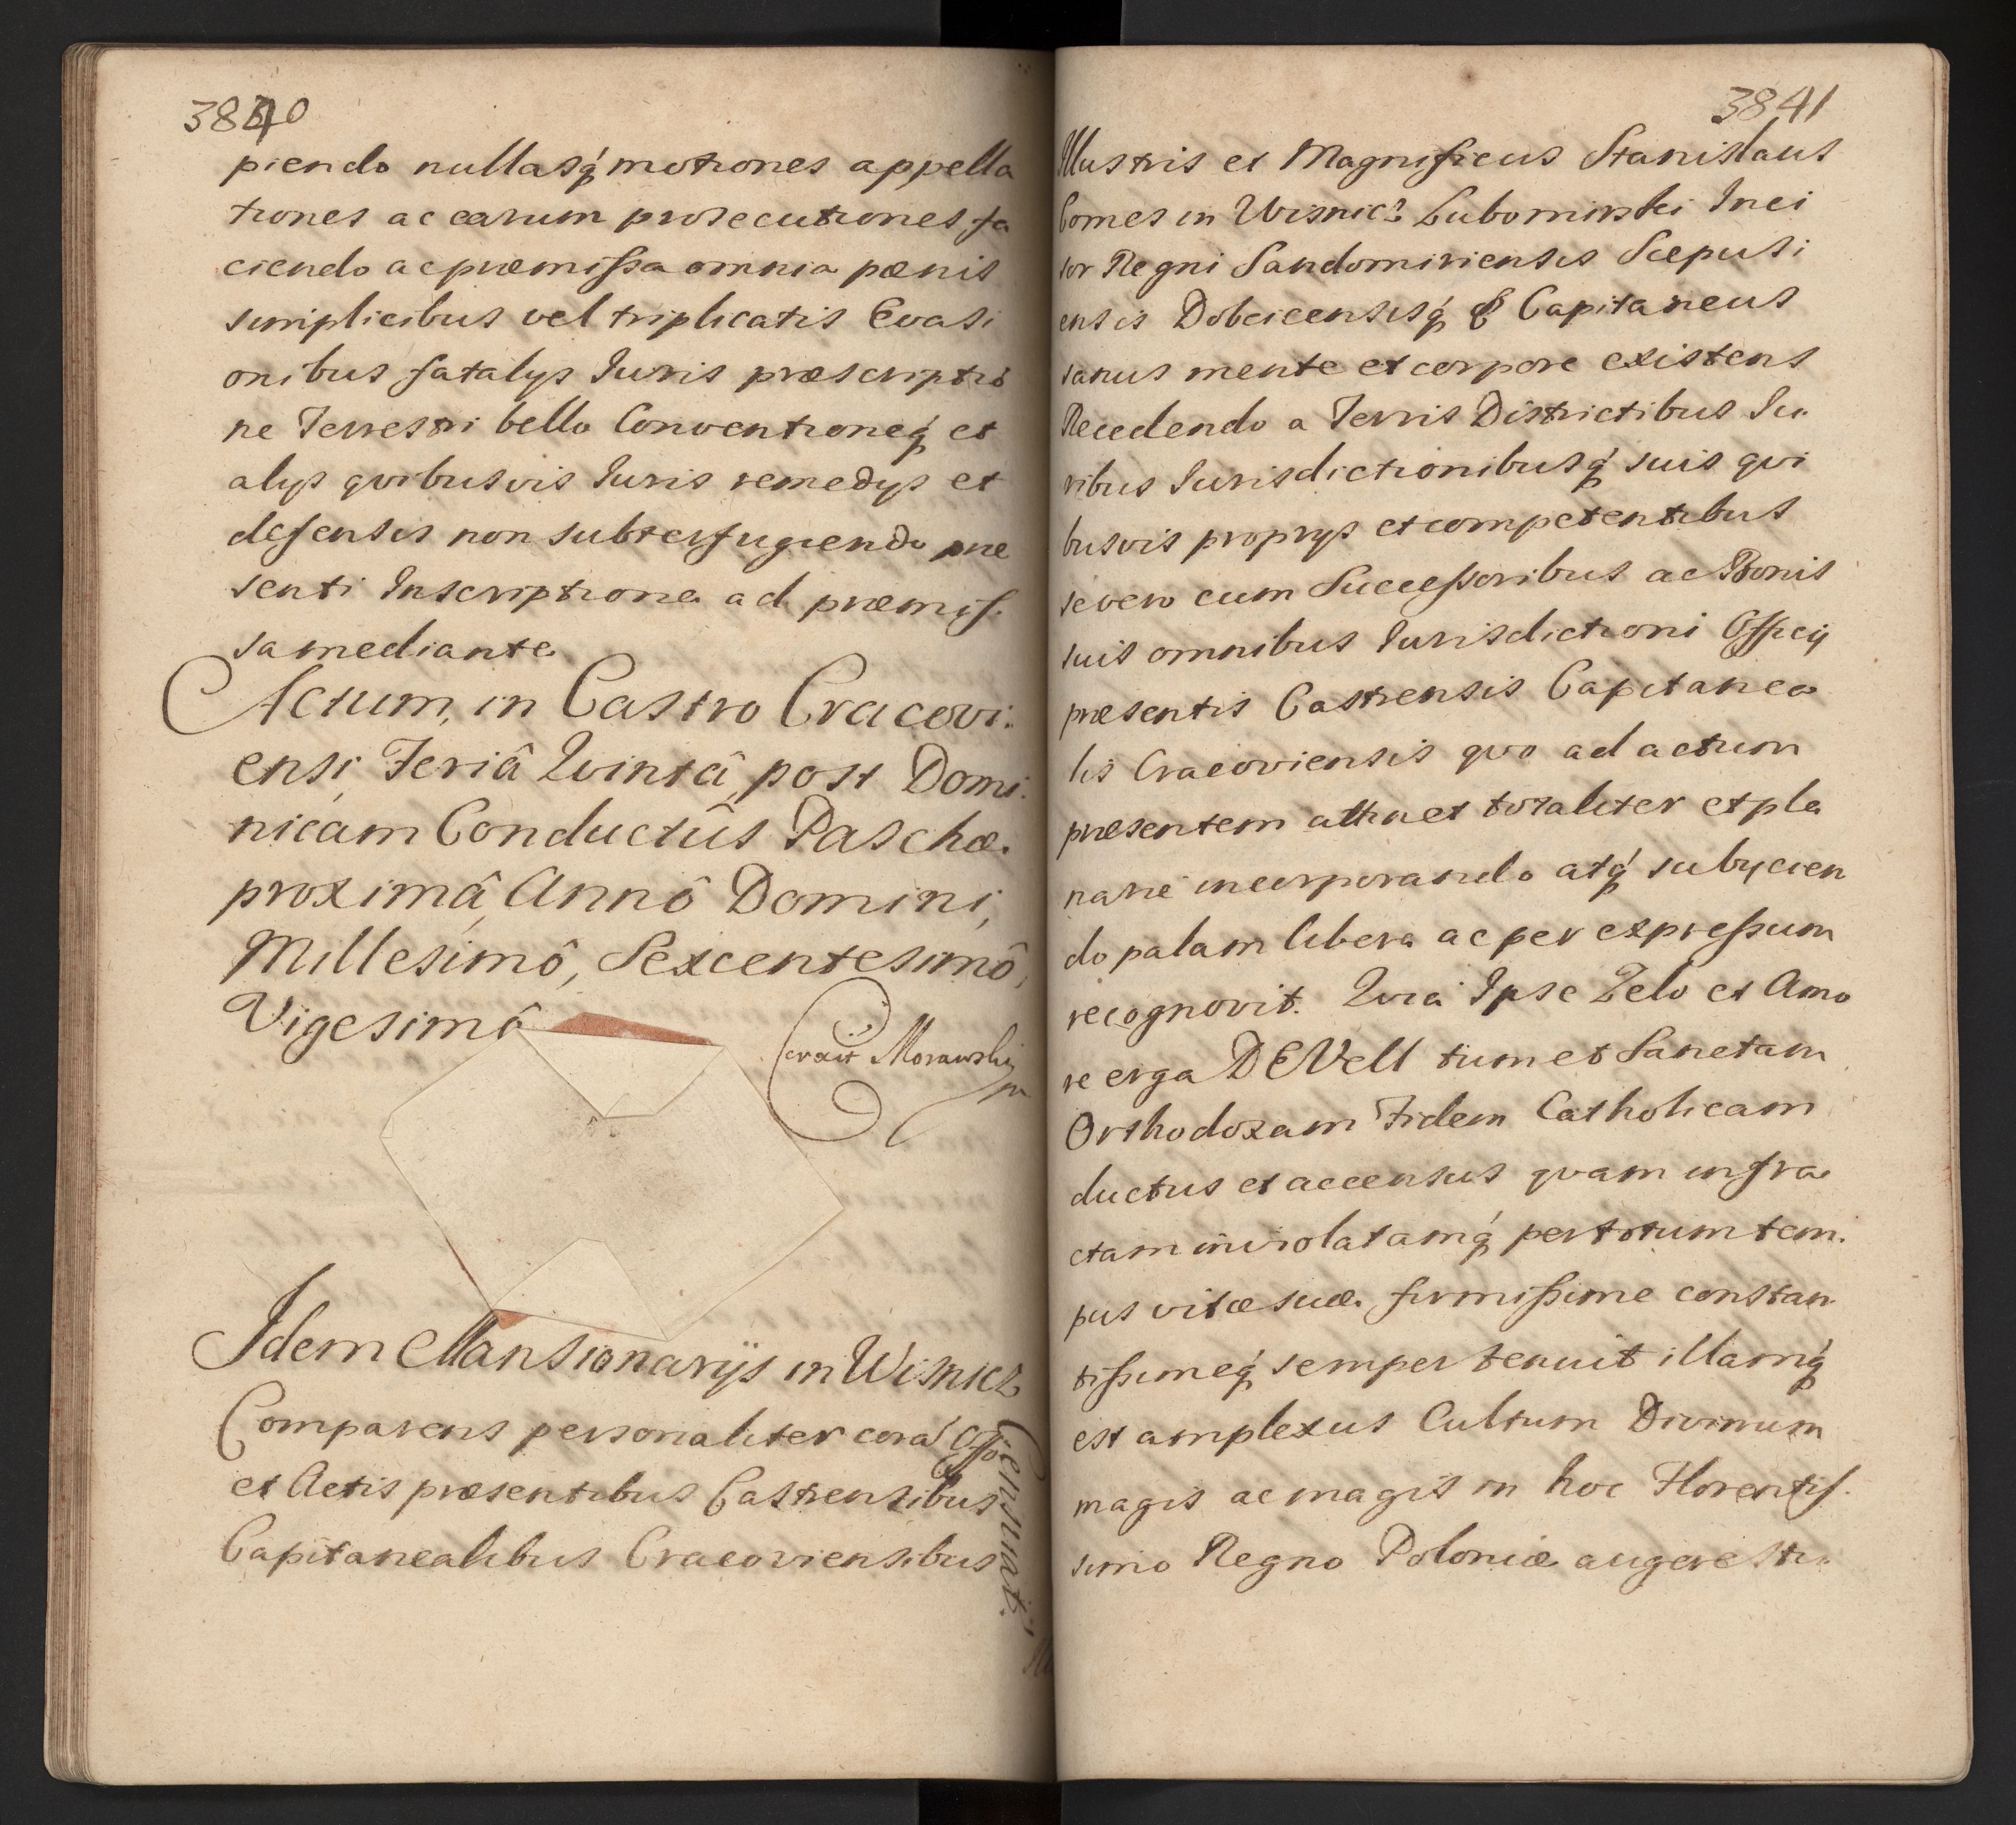 3840
piendo nullasq́ motiones appella
tiones ac earum prosecutiones fa
ciendo ac præmissa omnia pænis
simplicibus vel triplicatis Evasi
onibus fatalys Iuris præscriptio
ne Terrestri bello Conventioneq́ et
alys qvibusvis Iuris remedys et
defensis non subterfugiendo præ
senti Inscriptione ad præmis:
sa mediante
Actum, in Castro Cracovi:
ensi, Feriâ Qvintâ, post Domi:
nicam Conductûs Paschæ
proximâ, Annô Domini,
Millesimô, Sexcentesimô,
Vigesimô
Morawski
Idem Mansionarijs in Wisnicz
Comparens personaliter corã Offo
et Actis præsentibus Castrensibus
Capitanealibus Cracoviensibus
3841
Illustris et Magnificus Stanislaus
Comes in Wisnicz Lubomirski Inci
sor Regni Sandomiriensis Scepusi
ensis Dobcicensisq́ & Capitaneus
sanus mente et corpore existens
Recedendo a Terris Districtibus Iu
ribus Iurisdictionibusq́ suis qvi
busvis proprys et competentibus
se vero cum Successoribus ac Bonis
suis omnibus Iurisdictioni Officij
præsentis Castrensis Capitanea
lis Cracoviensis qvo ad actum
præsentem attinet totaliter et ple
narie incorporando atq́ subycien
do palam libere ac per expressum
recognovit. Qvia Ipse Zelo et Amo
re erga DEVell tum et Sanctam
Orthodoxam Fidem Catholicam
ductus et accensus qvam infra
ctam inviolatamq́ per totum tem:
pus vitæ suæ firmissime constan
tissimeq́ semper tenuit illamq́
est amplexus Cultum Divinum
magis ac magis in hoc Florentis:
simo Regno Poloniæ augere stu